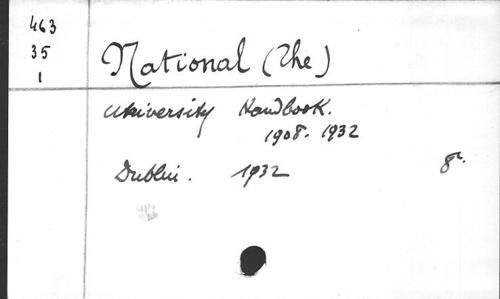 463
35
1
National (The)
University Handbook.
1908-1932
Dublin. 1932 8°.